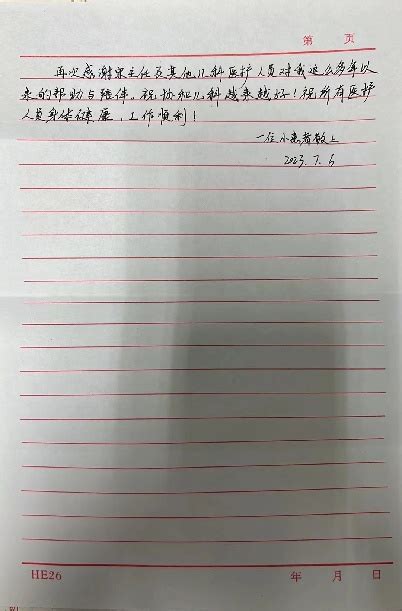 第 页
再次感谢宋主任及其他儿科医护人员对我这么多年以
来的帮助与陪伴。祝协和儿科越来越好！祝所有医护
人员身体健康，工作顺利！
一位小患者敬上
2023.7.6
HE26 年 月 日